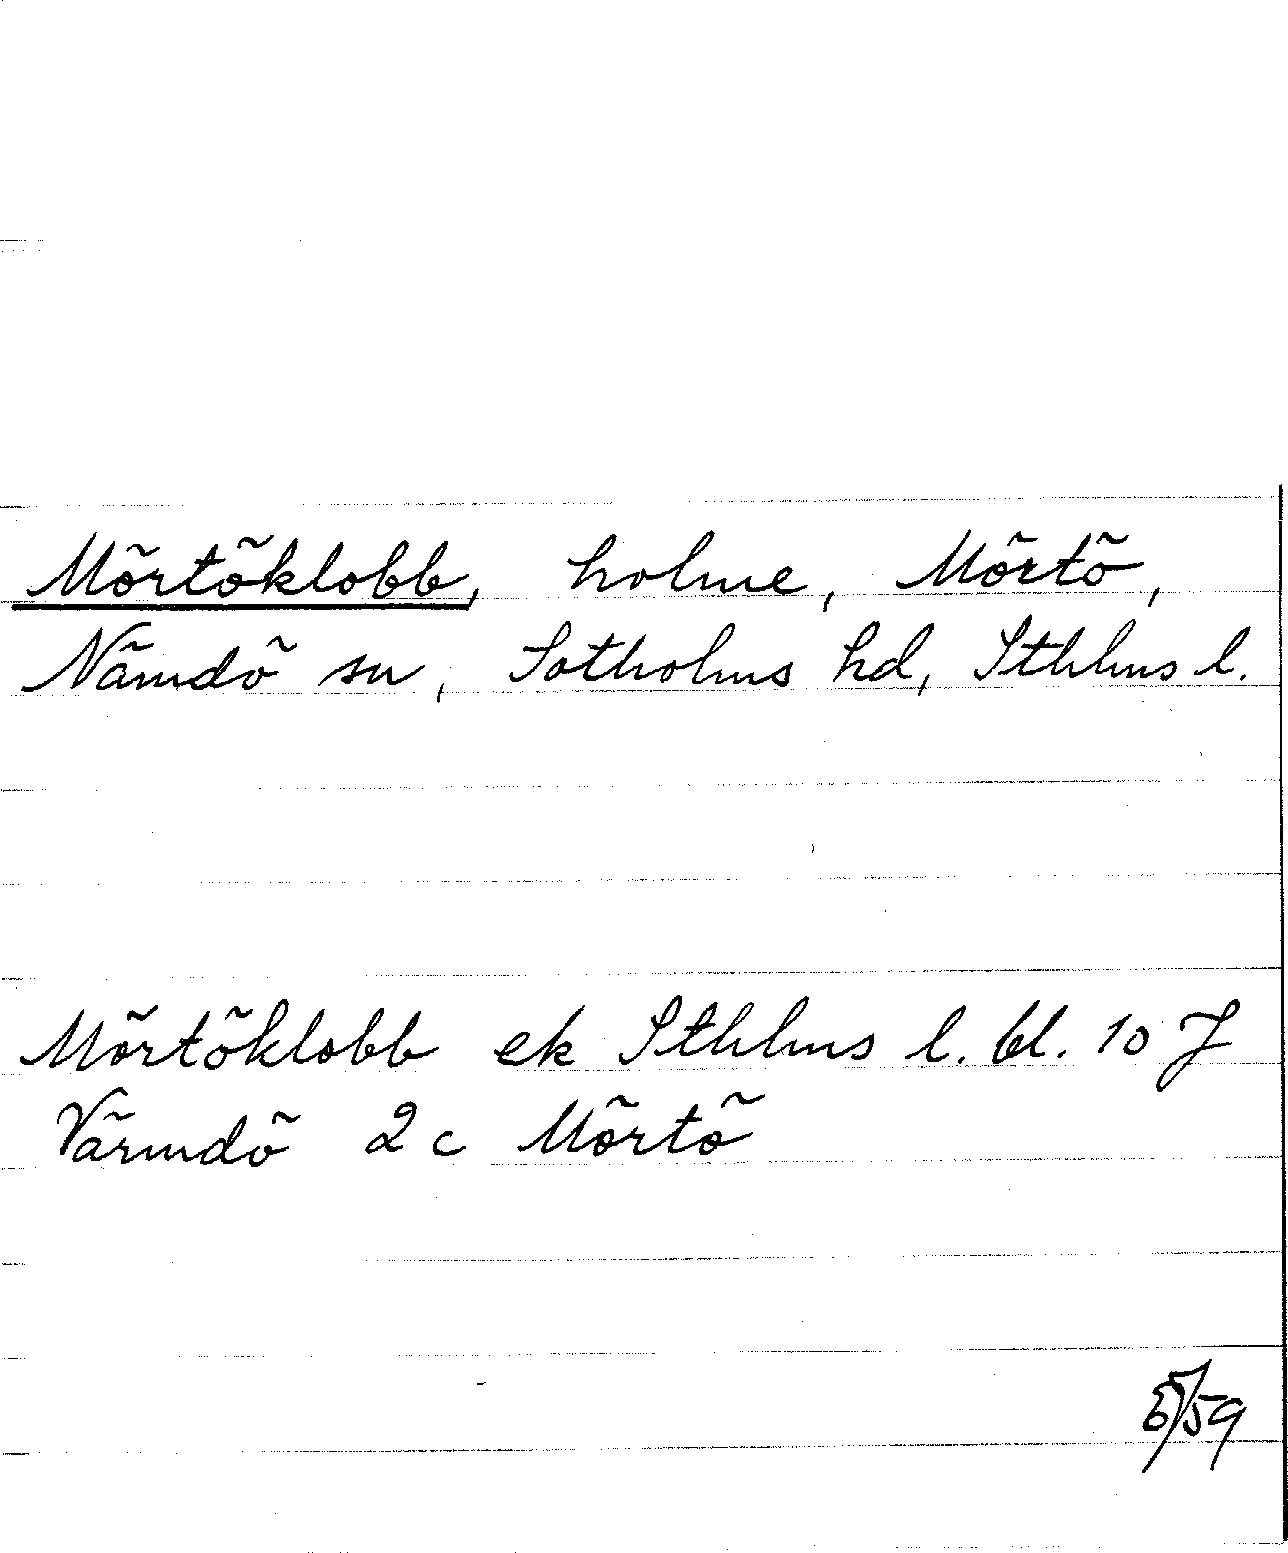 Mörtöklobb, holme, Mörtö,
Nämdö sn, Sotholms hd, Sthlms l.
Mörtöklobb ek Sthlms l. bl. 10 J
Värmdö 2 c Mörtö